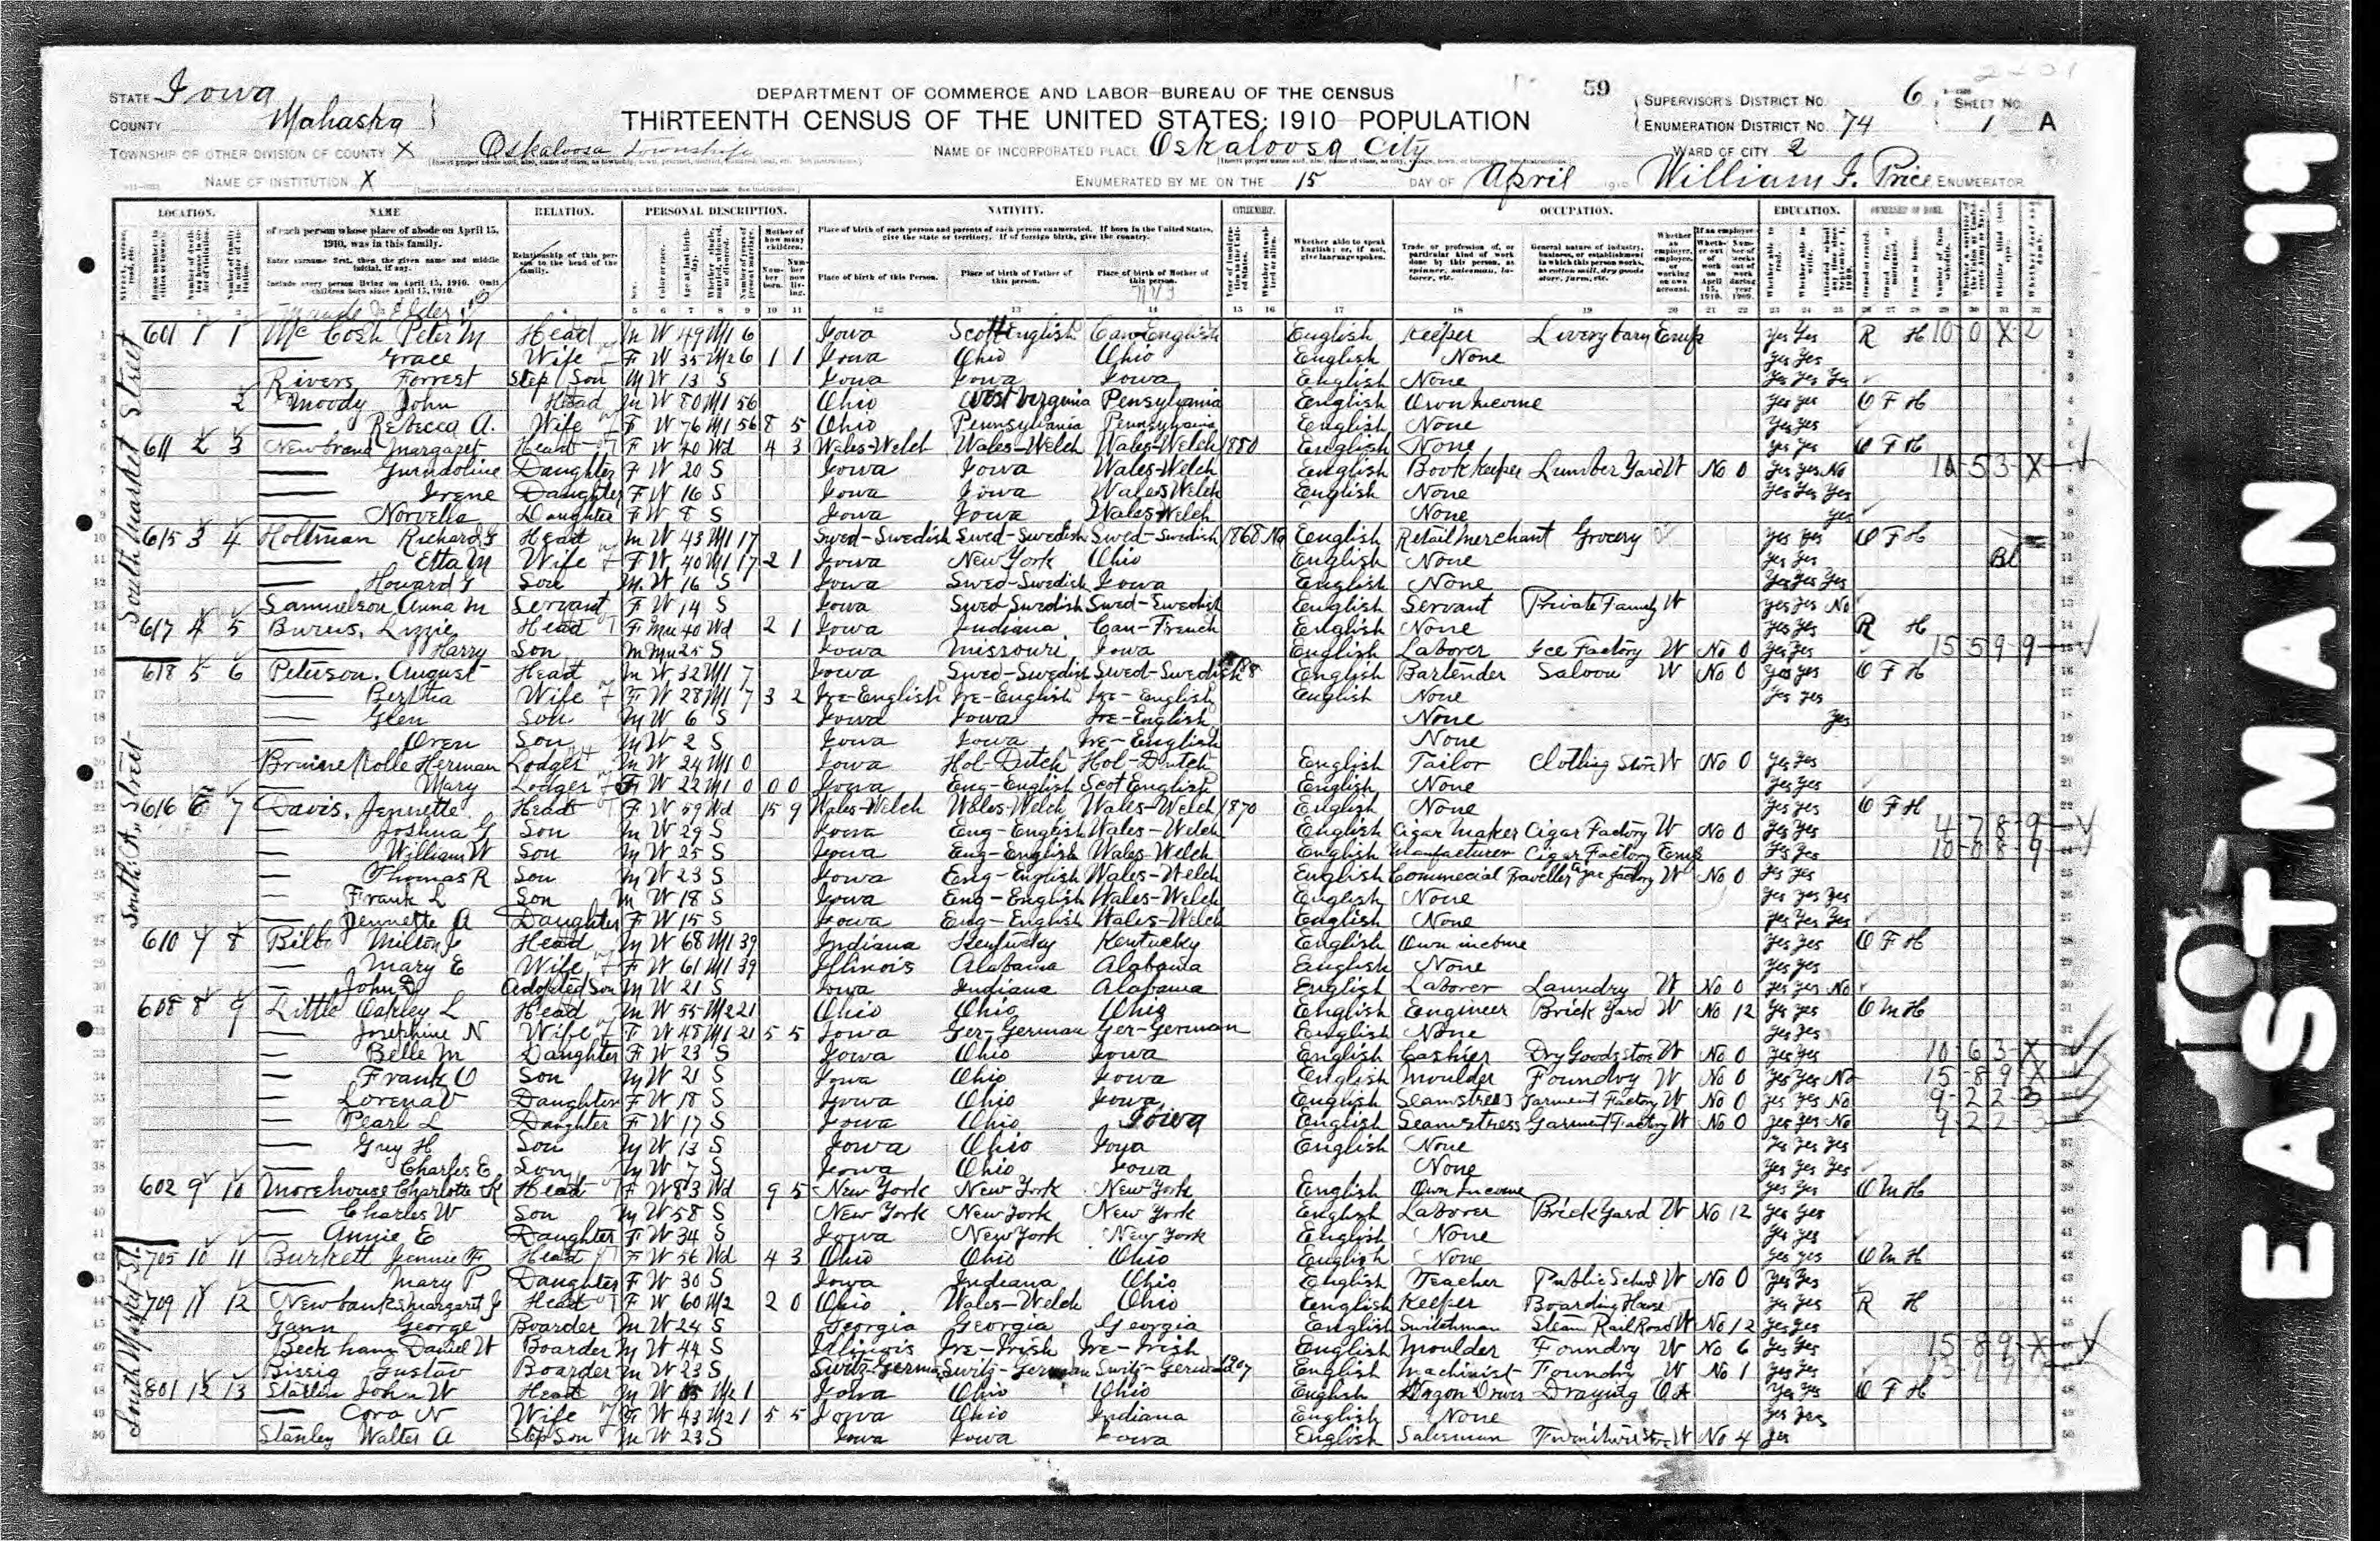 STATE Iowa
COUNTY Mahaska
TOWNSHIP OR OTHER DIVISION OF COUNTY X Oskaloosa Township
NAME OF INSTITUTION X
DEPARTMENT OF COMMERCE AND LABOR—BUREAU OF THE CENSUS
THIRTEENTH CENSUS OF THE UNITED STATES: 1910 POPULATION
NAME OF INCORPORATED PLACE Oskaloosa City
ENUMERATED BY ME ON THE 15 DAY OF April 1910 William J. Price ENUMERATOR
59
SUPERVISOR'S DISTRICT NO. 6
ENUMERATION DISTRICT NO. 74
SHEET NO. 1 A
WARD OF CITY 2
LOCATION. NAME RELATION. PERSONAL DESCRIPTION. NATIVITY. CITIZENSHIP. OCCUPATION. EDUCATION. OWNERSHIP OF HOME.
of each person whose place of abode on April 15, 1910, was in this family.
Enter surname first, then the given name and middle initial, if any.
Include every person living on April 15, 1910. Omit children born since April 15, 1910.
Relationship of this person to the head of the family.
Place of birth of each person and parents of each person enumerated. If born in the United States, give the state or territory. If of foreign birth, give the country.
Place of birth of this Person. Place of birth of Father of this person. Place of birth of Mother of this person.
Whether able to speak English; or, if not, give language spoken.
South Market Street
601 1 1 McCosh Peter M Head M W 49 M1 6 Iowa Scot English Can-English English Keeper Livery barn Emp Yes Yes R H
Grace Wife F W 35 M2 6 1 1 Iowa Ohio Ohio English None Yes Yes
Rivers Forrest Step Son M W 13 S Iowa Iowa Iowa English None Yes Yes Yes
2 Moody John Head M W 80 M1 56 Ohio West Virginia Pensylvania English Own Income Yes Yes O F H
Rebecca A. Wife F W 76 M1 56 8 5 Ohio Pennsylvania Pennsylvania English None Yes Yes
611 2 3 Margaret Head F W 40 Wd 4 3 Wales-Welch Wales-Welch Wales-Welch 1880 English None Yes Yes O F H
Gurndoline Daughter F W 20 S Iowa Iowa Wales-Welch English Bookkeeper Lumber Yard W No 0 Yes Yes No
Irene Daughter F W 16 S Iowa Iowa Wales Welch English None Yes Yes Yes
Norvella Daughter F W 8 S Iowa Iowa Wales-Welch None Yes
615 3 4 Holtman Richard G Head M W 43 M1 17 Swed-Swedish Swed-Swedish Swed-Swedish 1868 Na English Retail Merchant Grocery Yes Yes O F H
Etta M Wife F W 40 M1 17 2 1 Iowa New York Ohio English None Yes Yes Bl
Howard G Son M W 16 S Iowa Swed-Swedish Iowa English None Yes Yes Yes
Samuelson Anna M Servant F W 14 S Iowa Swed Swedish Swed-Swedish English Servant Private Family W Yes Yes No
617 4 5 Burns, Lizzie Head F Mu 40 Wd 2 1 Iowa Indiana Can-French English None Yes Yes R H
Harry Son M Mu 25 S Iowa Missouri Iowa English Laborer Ice Factory W No 0 Yes Yes
South "A" Street
618 5 6 Peterson, August Head M W 32 M1 7 Iowa Swed-Swedish Swed-Swedish English Bartender Saloon W No 0 Yes Yes O F H
Bertha Wife F W 28 M1 7 3 2 Ire-English Ire-English Ire-English English None Yes Yes
Glen Son M W 6 S Iowa Iowa Ire-English None Yes
Oren Son M W 2 S Iowa Iowa Ire-English None
Herman Lodger M W 24 M1 0 Iowa Hol-Dutch Hol-Dutch English Tailor Clothing Store W No 0 Yes Yes
Mary Lodger F W 22 M1 0 0 0 Iowa Eng-English Scot English English None Yes Yes
616 6 7 Davis, Jennette Head F W 59 Wd 15 9 Wales-Welch Wales-Welch Wales-Welch 1870 English None Yes Yes O F H
Joshua G Son M W 29 S Iowa Eng-English Wales-Welch English Cigar Maker Cigar Factory W No 0 Yes Yes
William W Son M W 25 S Iowa Eng-English Wales-Welch English Manufacturer Cigar Factory Emp Yes Yes
Thomas R Son M W 23 S Iowa Eng-English Wales-Welch English Commecial Traveller Cigar factory W No 0 Yes Yes
Frank L Son M W 18 S Iowa Eng-English Wales-Welch English None Yes Yes Yes
Jennette A Daughter F W 15 S Iowa Eng-English Wales-Welch English None Yes Yes Yes
610 7 8 Bilbo Milton Head M W 68 M1 39 Indiana Kentucky Kentucky English Own income Yes Yes O F H
Mary E Wife F W 61 M1 39 Illinois Alabama Alabama English None Yes Yes
John Adopted Son M W 21 S Iowa Indiana Alabama English Laborer Laundry W No 0 Yes Yes No
608 8 9 Little Oakley L Head M W 55 M2 21 Ohio Ohio Ohio English Engineer Brick Yard W No 12 Yes Yes O M H
Josephine N Wife F W 48 M1 21 5 5 Iowa Ger-German Ger-German English None Yes Yes
Belle M Daughter F W 23 S Iowa Ohio Iowa English Cashier Dry Goods store W No 0 Yes Yes
Frank O Son M W 21 S Iowa Ohio Iowa English Moulder Foundry W No 0 Yes Yes No
Lorena V Daughter F W 18 S Iowa Ohio Iowa English Seamstress Garment Factory W No 0 Yes Yes No
Pearl L Daughter F W 17 S Iowa Ohio Iowa English Seamstress Garment Factory W No 0 Yes Yes No
Guy H Son M W 13 S Iowa Ohio Ioya English None Yes Yes Yes
Charles E Son M W 7 S Iowa Ohio Iowa None Yes Yes Yes
602 9 10 Morehouse Charlotte K Head F W 83 Wd 9 5 New York New York New York English Own Income Yes Yes O M H
Charles W Son M W 58 S New York New York New York English Laborer Brick Yard W No 12 Yes Yes
Annie E Daughter F W 34 S Iowa New York New York English None Yes Yes
South Market St
705 10 11 Burkett Jennie F Head F W 56 Wd 4 3 Ohio Ohio Ohio English None Yes Yes O M H
Mary P Daughter F W 30 S Iowa Indiana Ohio English Teacher Public School W No 0 Yes Yes
709 11 12 Newbanks Margaret J Head F W 60 M2 2 0 Ohio Wales-Welch Ohio English Keeper Boarding House Yes Yes R H
Gann George Boarder M W 24 S Georgia Georgia Georgia English Switchman Steam Rail Road W No 12 Yes Yes
Beckham Daniel W Boarder M W 44 S Illinois Ire-Irish Ire-Irish English Moulder Foundry W No 6 Yes Yes
Bissig Gustav Boarder M W 23 S Switz-German Switz-German Switz-German 1907 English Machinist Foundry W No 1 Yes Yes
801 12 13 John W Head M W M2 1 Iowa Ohio Ohio English Wagon Driver Draying O A Yes Yes O F H
Cora N Wife F W 43 M2 1 5 5 Iowa Ohio Indiana English None Yes Yes
Stanley Walter A Step Son M W 23 S Iowa Iowa Iowa English Salesman Furniture Store W No 4 Yes
EASTMAN 19